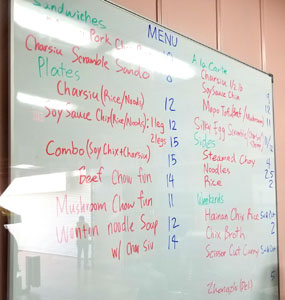 Sandwiches
MENU
Pork Ch
Charsiu Scramble Sando
Plates
Charsiu (Rice/Noods) 12
Soy Sauce Chix (Rice/Noods): 1 leg 12
2 legs 15
Combo (Soy Chix + Charsiu) 15
Beef Chow fun 14
Mushroom Chow fun 11
Wontin noodle Soup 12
w/ char siu 14
A la Carte
Charsiu 1/2 lb 9
Soy Sauce Chix 12
Mapo Tofu (Beef/Mushroom) 11
Silky Egg Scramble
Sides
Steamed Choy 4
Noodles 2.5
Rice 2
Weekends
Hainan Chix Rice
Chix Broth 2
Scissor Cut Curry